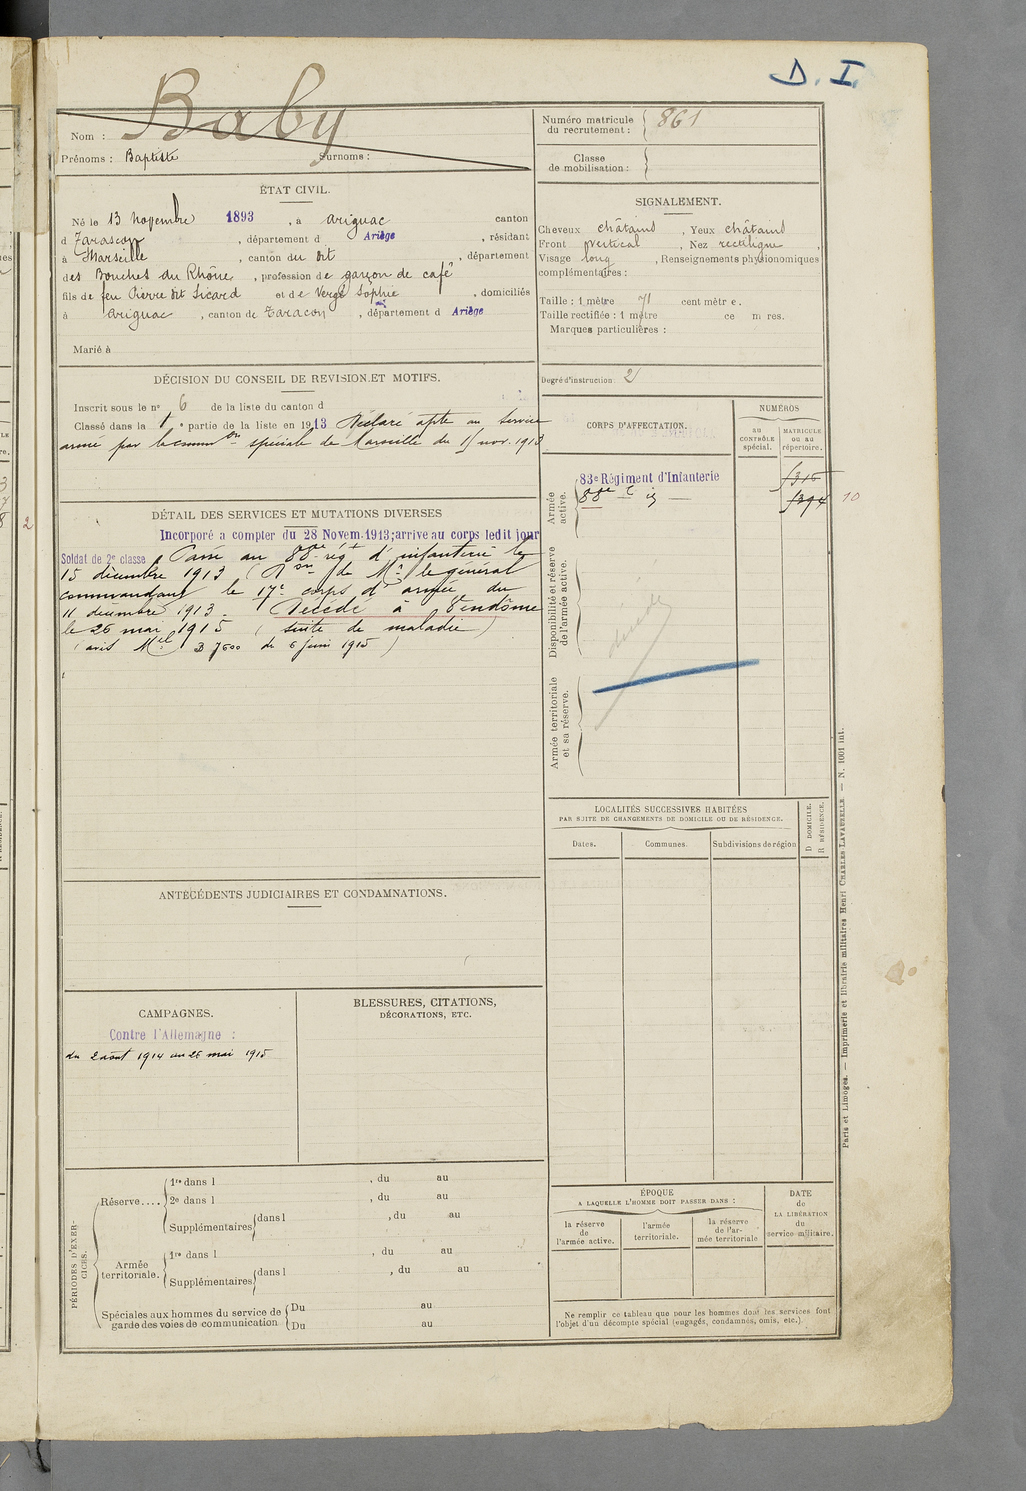 D. I.
Nom : Baby
Prénoms : Baptiste Surnoms :
Numéro matricule du recrutement : 861
Classe de mobilisation :
ÉTAT CIVIL.
Né le 13 novembre 1893, à Arignac canton
d Tarascon, département d Ariège, résidant
à Marseille, canton du dit, département
des Bouches du Rhône, profession de garçon de café
fils de feu Pierre dit Sicard et de Vergé Sophie, domiciliés
à Arignac, canton de Taracon, département d Ariège
Marié à
SIGNALEMENT.
Cheveux châtains, Yeux châtains
Front vertical, Nez rectiligne,
Visage long, Renseignements physionomiques
complémentaires :
Taille : 1 mètre 71 centimètre.
Taille rectifiée : 1 mètre ce m res.
Marques particulières :
Degré d'instruction 2
DÉCISION DU CONSEIL DE REVISION ET MOTIFS.
Inscrit sous le n° 6 de la liste du canton d
Classé dans la 1e partie de la liste en 1913 Déclaré apte au service
armé par la comm on spéciale de Marseille du 15 nov. 1913
DÉTAIL DES SERVICES ET MUTATIONS DIVERSES
Incorporé a compter du 28 Novem. 1913; arrive au corps ledit jour
Soldat de 2e classe Passé au 88e régt d'infanterie le
15 décembre 1913 (Don de Mr le général
commandant le 17e corps d'armée du
11 décembre 1913. Décédé à Vendôme
le 26 mai 1915 (suite de maladie)
(avis Mel B 7600 du 6 juin 1915)
CORPS D'AFFECTATION.
NUMÉROS
au CONTRÔLE spécial.
MATRICULE ou au répertoire.
Armée active.
83e Régiment d'Infanterie
88e
10
Disponibilité et réserve de l'armée active.
décédé
Armée territoriale et sa réserve.
LOCALITÉS SUCCESSIVES HABITÉES
PAR SUITE DE CHANGEMENTS DE DOMICILE OU DE RÉSIDENCE.
Dates.
Communes.
Subdivisions de région
D DOMICILE.
R RÉSIDENCE.
ANTÉCÉDENTS JUDICIAIRES ET CONDAMNATIONS.
CAMPAGNES.
Contre l'Allemagne :
du 2 août 1914 au 26 mai 1915
BLESSURES, CITATIONS,
DÉCORATIONS, ETC.
PÉRIODES D'EXERCICES.
Réserve....
1re dans l , du au
2e dans l , du au
Supplémentaires dans l , du au
Armée territoriale.
1re dans l , du au
Supplémentaires dans l , du au
Spéciales aux hommes du service de garde des voies de communication
Du au
Du au
ÉPOQUE
A LAQUELLE L'HOMME DOIT PASSER DANS :
la réserve de l'armée active.
l'armée territoriale.
la réserve de l'armée territoriale
DATE de LA LIBÉRATION du service militaire.
Ne remplir ce tableau que pour les hommes dont les services font
l'objet d'un décompte spécial (engagés, condamnés, omis, etc.)
Paris et Limoges. — Imprimerie et librairie militaires Henri CHARLES-LAVAUZELLE. — N. 1001 int.